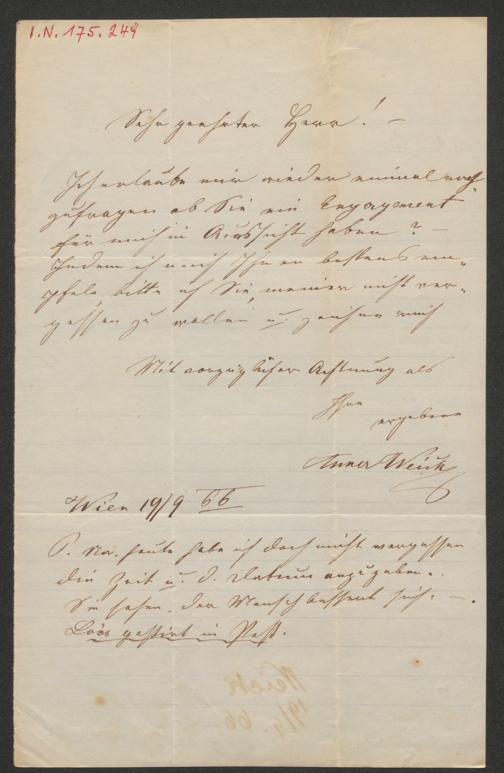 I.N. 175.249
Sehr geehrter Herr! –
Ich erlaube mir wieder einmal nach
zufragen ob Sie ein Engagement
für mich in Aussicht haben? –
Indem ich mich Ihnen bestens em-
pfele, bitte ich Sie, meiner nicht ver-
gessen zu wollen u. zeichne mich
Mit vorzüglicher Achtung als
Ihre
ergebene
Anna Weick
Wien 19/9 66
P. heute habe ich doch nicht vergessen
die Zeit u. d. Datum anzugeben.
Sie sehen, der Mensch bessert sich. –
gastirt in Pest.